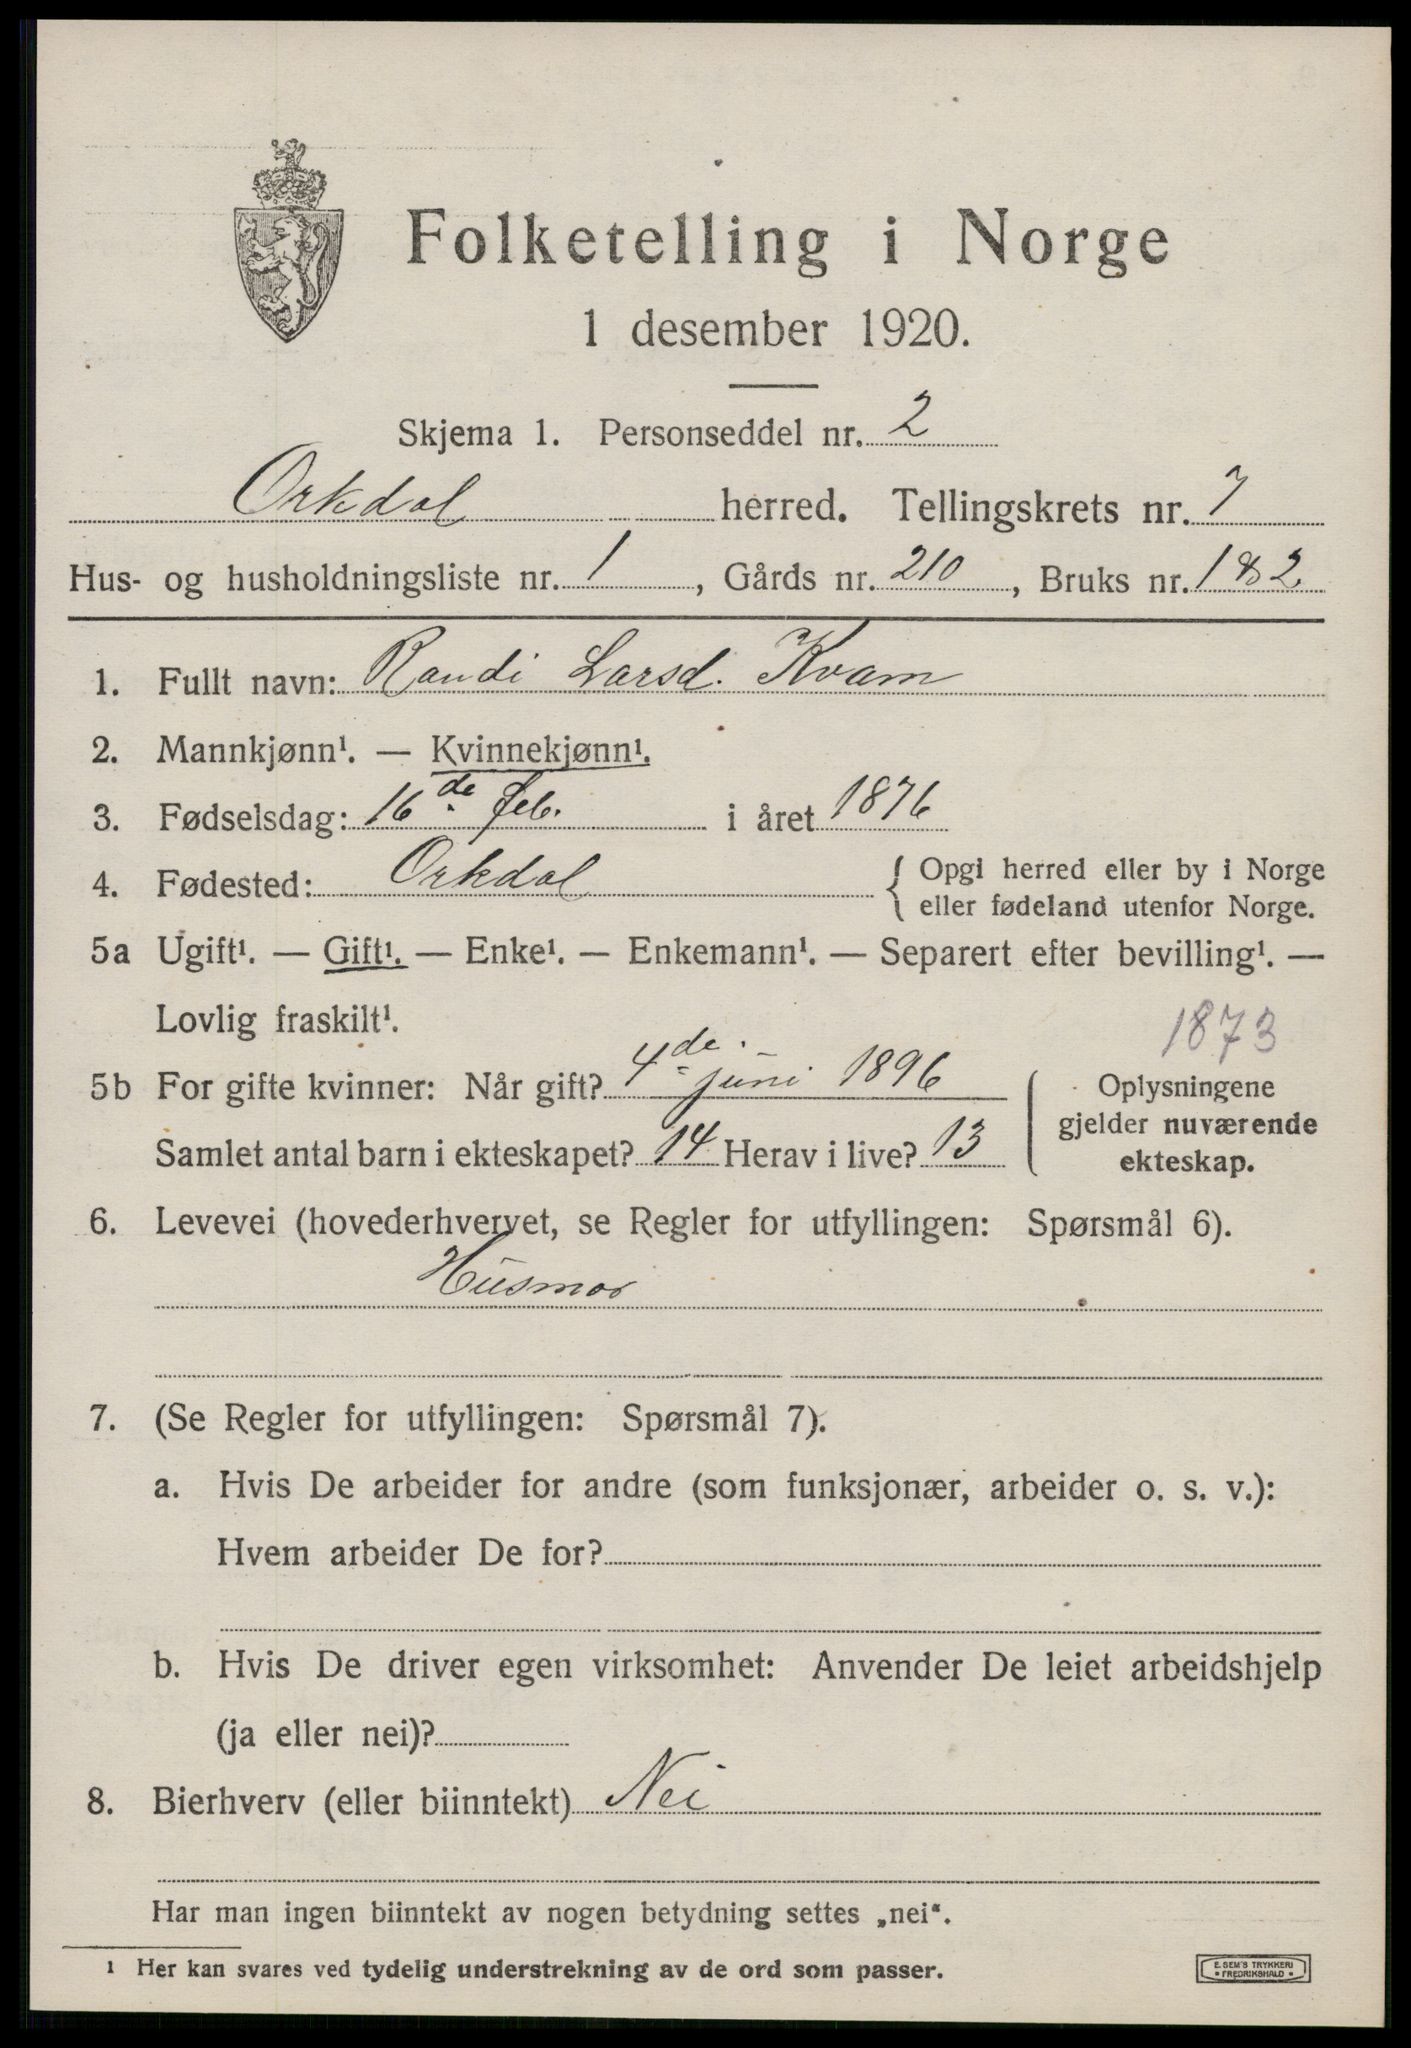 Folketelling i Norge
1 desember 1920.
Skjema 1. Personseddel nr. 2
Orkdal herred. Tellingskrets nr. 7
Hus- og husholdningsliste nr. 1, Gårds nr. 210, Bruks nr. 1 & 2.
1. Fullt navn: Randi Larsd. Kvam
2. Mannkjønn¹. — Kvinnekjønn¹.
3. Fødselsdag: 16de feb. i året 1876
4. Fødested: Orkdal { Opgi herred eller by i Norge
eller fødeland utenfor Norge.
5a Ugift¹. — Gift¹. — Enke¹. — Enkemann¹. — Separert efter bevilling¹. —
Lovlig fraskilt¹.
1873
5b For gifte kvinner: Når gift? 4de juni 1896 { Oplysningene
gjelder nuværende
ekteskap.
Samlet antal barn i ekteskapet? 14 Herav i live? 13
6. Levevei (hovederhvervet, se Regler for utfyllingen: Spørsmål 6).
Husmor
7. (Se Regler for utfyllingen: Spørsmål 7).
a. Hvis De arbeider for andre (som funksjonær, arbeider o. s. v.):
Hvem arbeider De for?
b. Hvis De driver egen virksomhet: Anvender De leiet arbeidshjelp
(ja eller nei)?
8. Bierhverv (eller biinntekt) Nei
Har man ingen biinntekt av nogen betydning settes „nei“.
1 Her kan svares ved tydelig understrekning av de ord som passer.
E. SEM'S TRYKKERI
• FREDRIKSHALD •